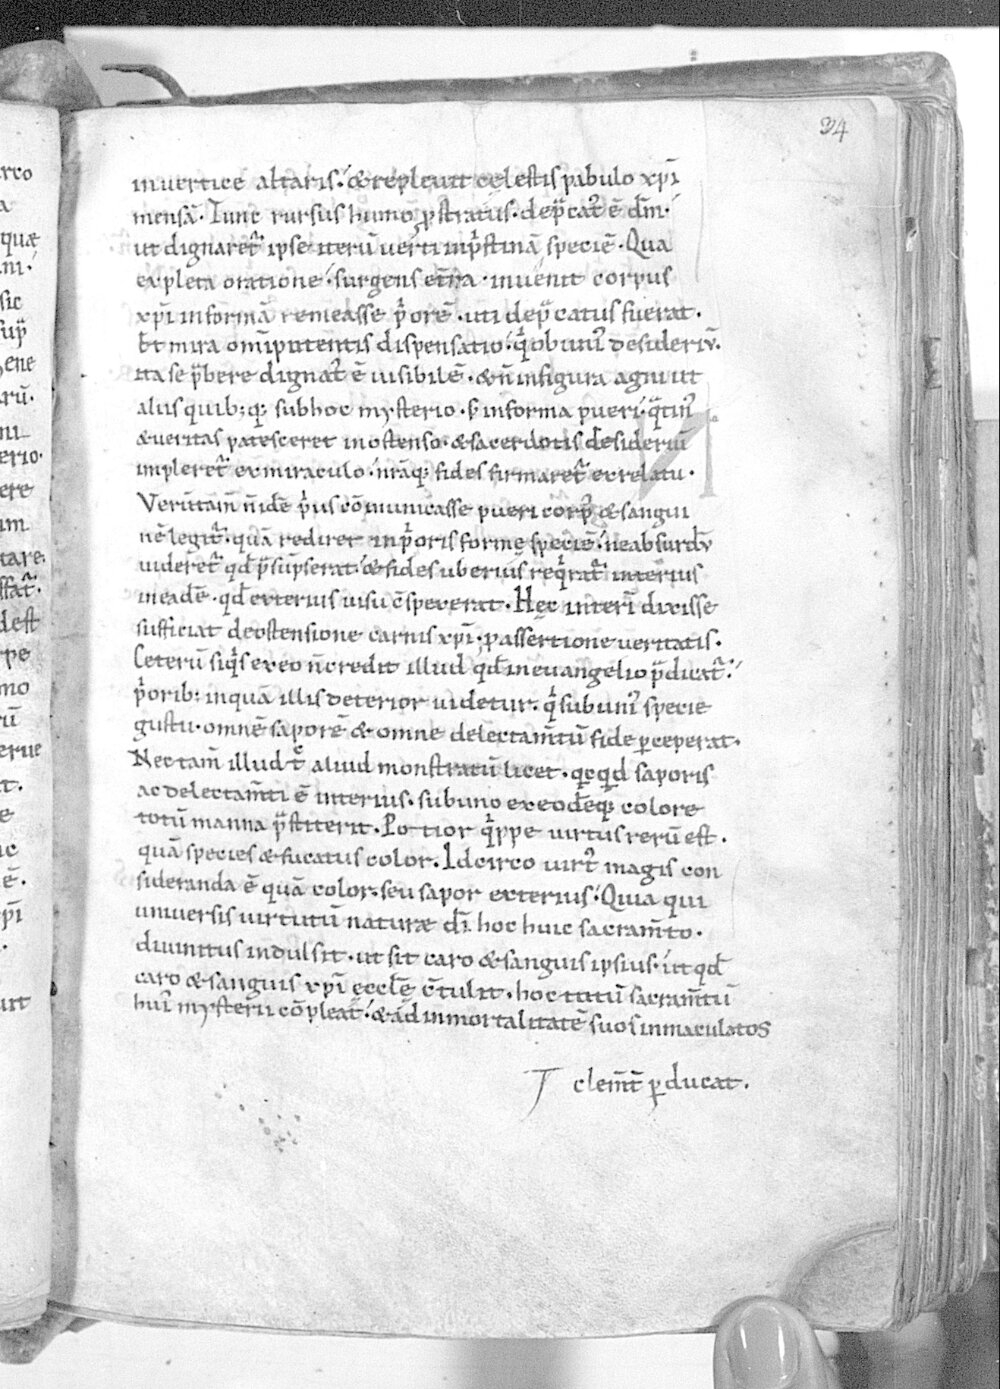 34
inuertice altaris. & repleuit cęlestis pabulo xp̄i
mensā. Tunc rursus humo ꝓstratus. dep̄catꝰ ē dn̄m.
ut dignaret᷑ ipse iterū uerti inpͥstinā speciē. Qua
expleta oratione. surgens et̄ra. inuenit corpus
xp̄i informā remeasse pͥorē. uti dep̄catus fuerat.
Et mira om̄ipotentis dispensatio. qͥ obuniꝰ desideriū.
ita se p̄bere dignatꝰ ē uisibilē. & n̄ infigura agni ut
aliis quib; q; subhoc mysterio. s; informa pueri. qͣtinꝰ
& ueritas patesceret inostenso. & sacerdotis desideriū
impleret᷑ ex miraculo. nr̄aq; fides firmaret᷑ ex relatu.
Verūtam̄ n̄idē pͥus cōmunicasse pueri corpꝰ & sangui
nē legit᷑. quā redirer inpͥoris formę speciē. neabsurdū
uideret᷑ qd̄ p̄sūpserat. & fides uberius reqͥrat᷑ interius
ineadē. qd̄ exterius uisu c̄spexerat. Hęc interī dixisse
sufficiat deostensione carnis xp̄i. ꝓassertione ueritatis.
Ceterū siqͥs exeo n̄credit illud qd̄ ineuangelio p̄dicat᷑.
pͥorib; inquā illis deterior uidetur. qͥ subuniꝰ specie
gustu. omnē saporē & omne delectam̄tū fide ꝑceperat.
Nec tam̄ illud t̄ aliud monstratū licet. qͥcqͥd saporis
ac delectam̄ti ē interius. subuno exeodēq; colore
totū manna p̄stiterit. Potior qͥppe uirtus rerū est.
quā species & fucatus color. Idcirco uirtꝰ magis con
sideranda ē quā color. seu sapor exterius. Quia qui
uniuersis uirtutū naturæ dī. hoc huic sacram̄to.
diuinitus indulsit. ut sit caro & sanguis ipsius. ut qd̄
caro & sanguis xp̄i ęccl̄ę c̄tulit. hoc totū sacram̄tū
huiꝰ mysterii cōpleat. & ad inmortalitatē suos inmaculatos
clem̄t ꝑducat.